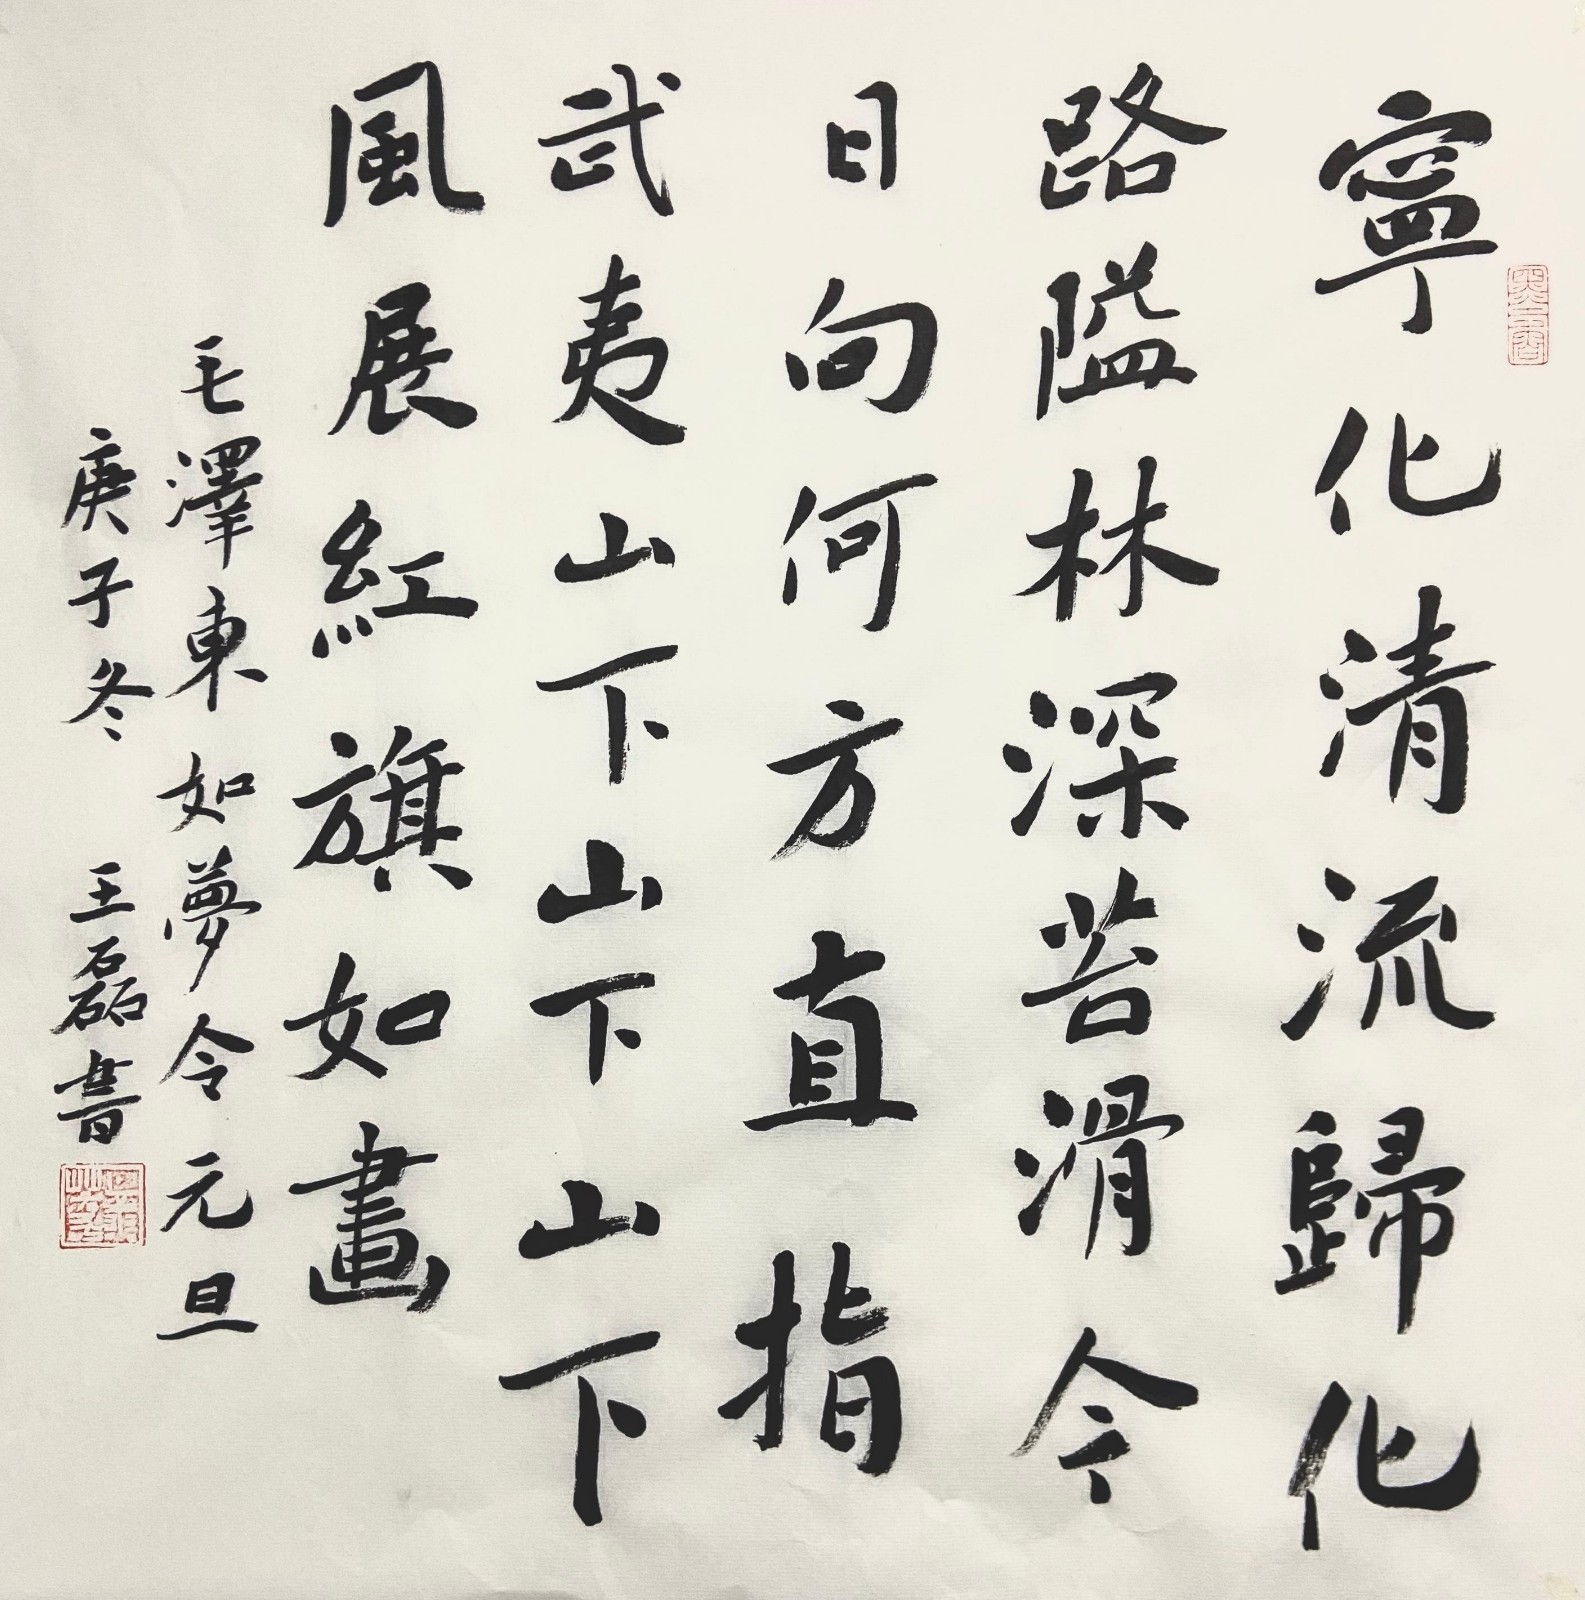 寧化清流歸化
路隘林深苔滑今
日向何方直指
武夷山下山下山下
風展紅旗如畫
毛澤東如夢令元旦
庚子冬 王磊書